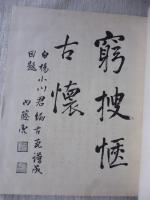 窮搜愜
古懷
白楊小川君編古瓦譜成
囙題
內藤虎